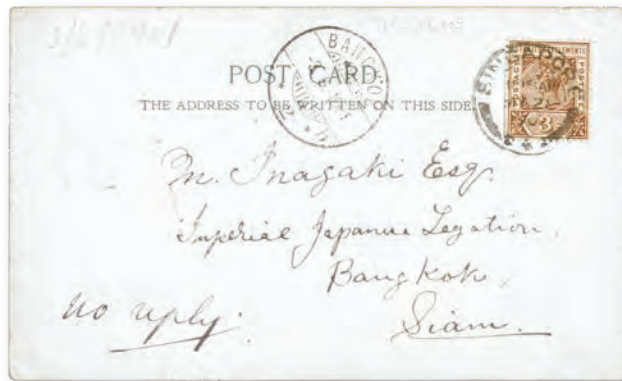 POST CARD.
THE ADDRESS TO BE WRITTEN ON THIS SIDE.
BANGKOK
SINGAPORE
SETTLEMENTS
POSTAGE
3
M. Inagaki Esq.
Imperial Japanese Legation,
Bangkok,
Siam.
No reply.